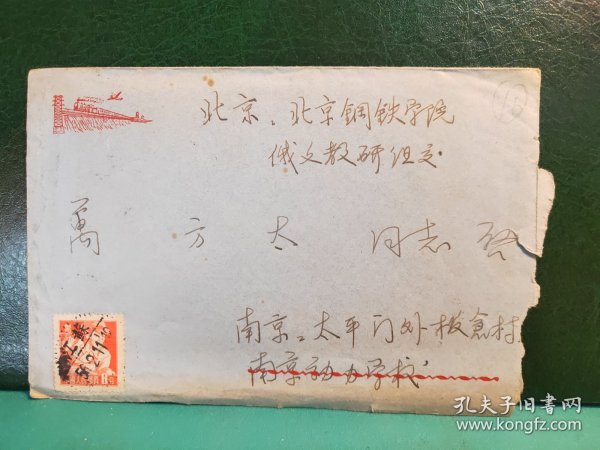 北京、北京钢铁学院
俄文教研组交
萬方太同志启
南京：太平门外板倉村
南京动力学校
13
孔夫子旧书网
www.kongfz.com